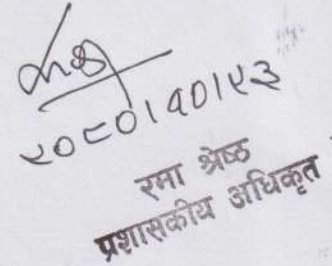 २०८०।१०।१३
रमा श्रेष्ठ
प्रशासकीय अधिकृत